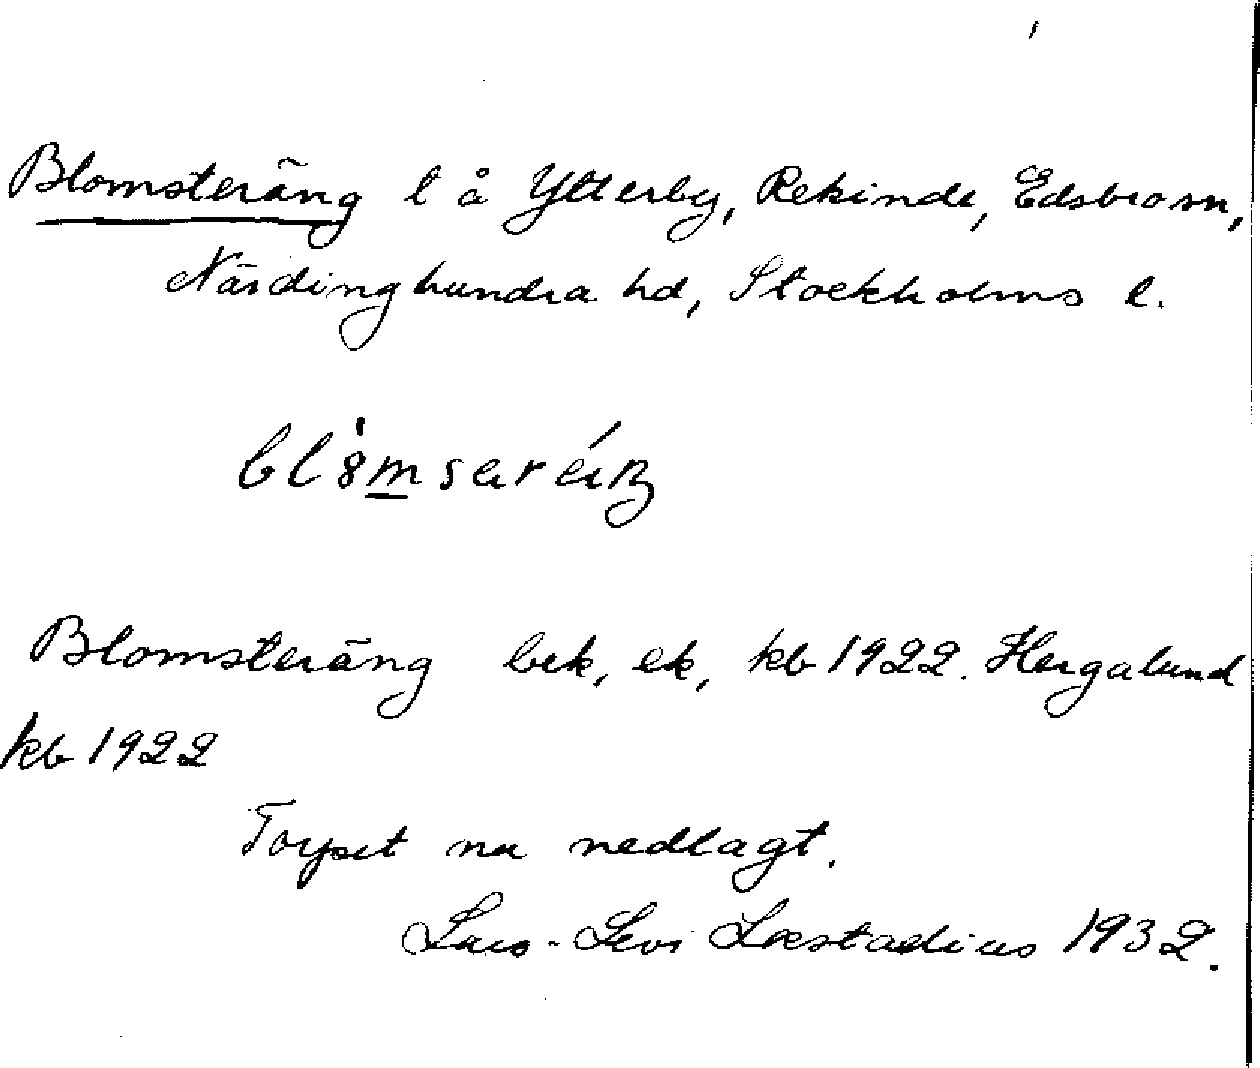 Blomsteräng l å Ytterby, Rekinde, Edsbro sn,
Närdinghundra hd, Stockholms l.
Blomsteräng bek, ek, kb 1922. Hergalund
kb 1922
Torpet nu nedlagt.
Lars-Levi Læstadius 1932.